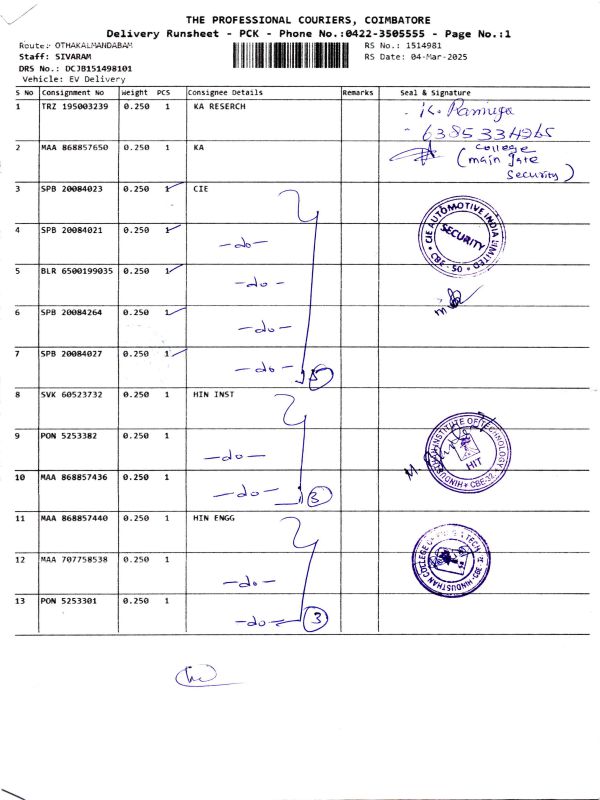 THE PROFESSIONAL COURIERS, COIMBATORE
Delivery Runsheet - PCK - Phone No.:0422-3505555 - Page No.:1
Route: OTHAKALMANDABAM RS No.: 1514981
Staff: SIVARAM RS Date: 04-Mar-2025
DRS No.: DCJB151498101
Vehicle: EV Delivery
S No Consignment No Weight PCS Consignee Details Remarks Seal & Signature
1 TRZ 195003239 0.250 1 KA RESERCH K. Ramya
6385334265
2 MAA 868857650 0.250 1 KA College
(main gate
Security)
3 SPB 20084023 0.250 1 CIE
4 SPB 20084021 0.250 1 -do-
CIE AUTOMOTIVE INDIA LIMITED
SECURITY
CBE - 50
5 BLR 6500199035 0.250 1 -do-
6 SPB 20084264 0.250 1 -do-
7 SPB 20084027 0.250 1 -do- 5
8 SVK 60523732 0.250 1 HIN INST
9 PON 5253382 0.250 1 -do-
INSTITUTE OF TECHNOLOGY
HIT
CBE-32
10 MAA 868857436 0.250 1 -do- 3
11 MAA 868857440 0.250 1 HIN ENGG
12 MAA 707758538 0.250 1 -do-
HINDUSTHAN COLLEGE
13 PON 5253301 0.250 1 -do- 3